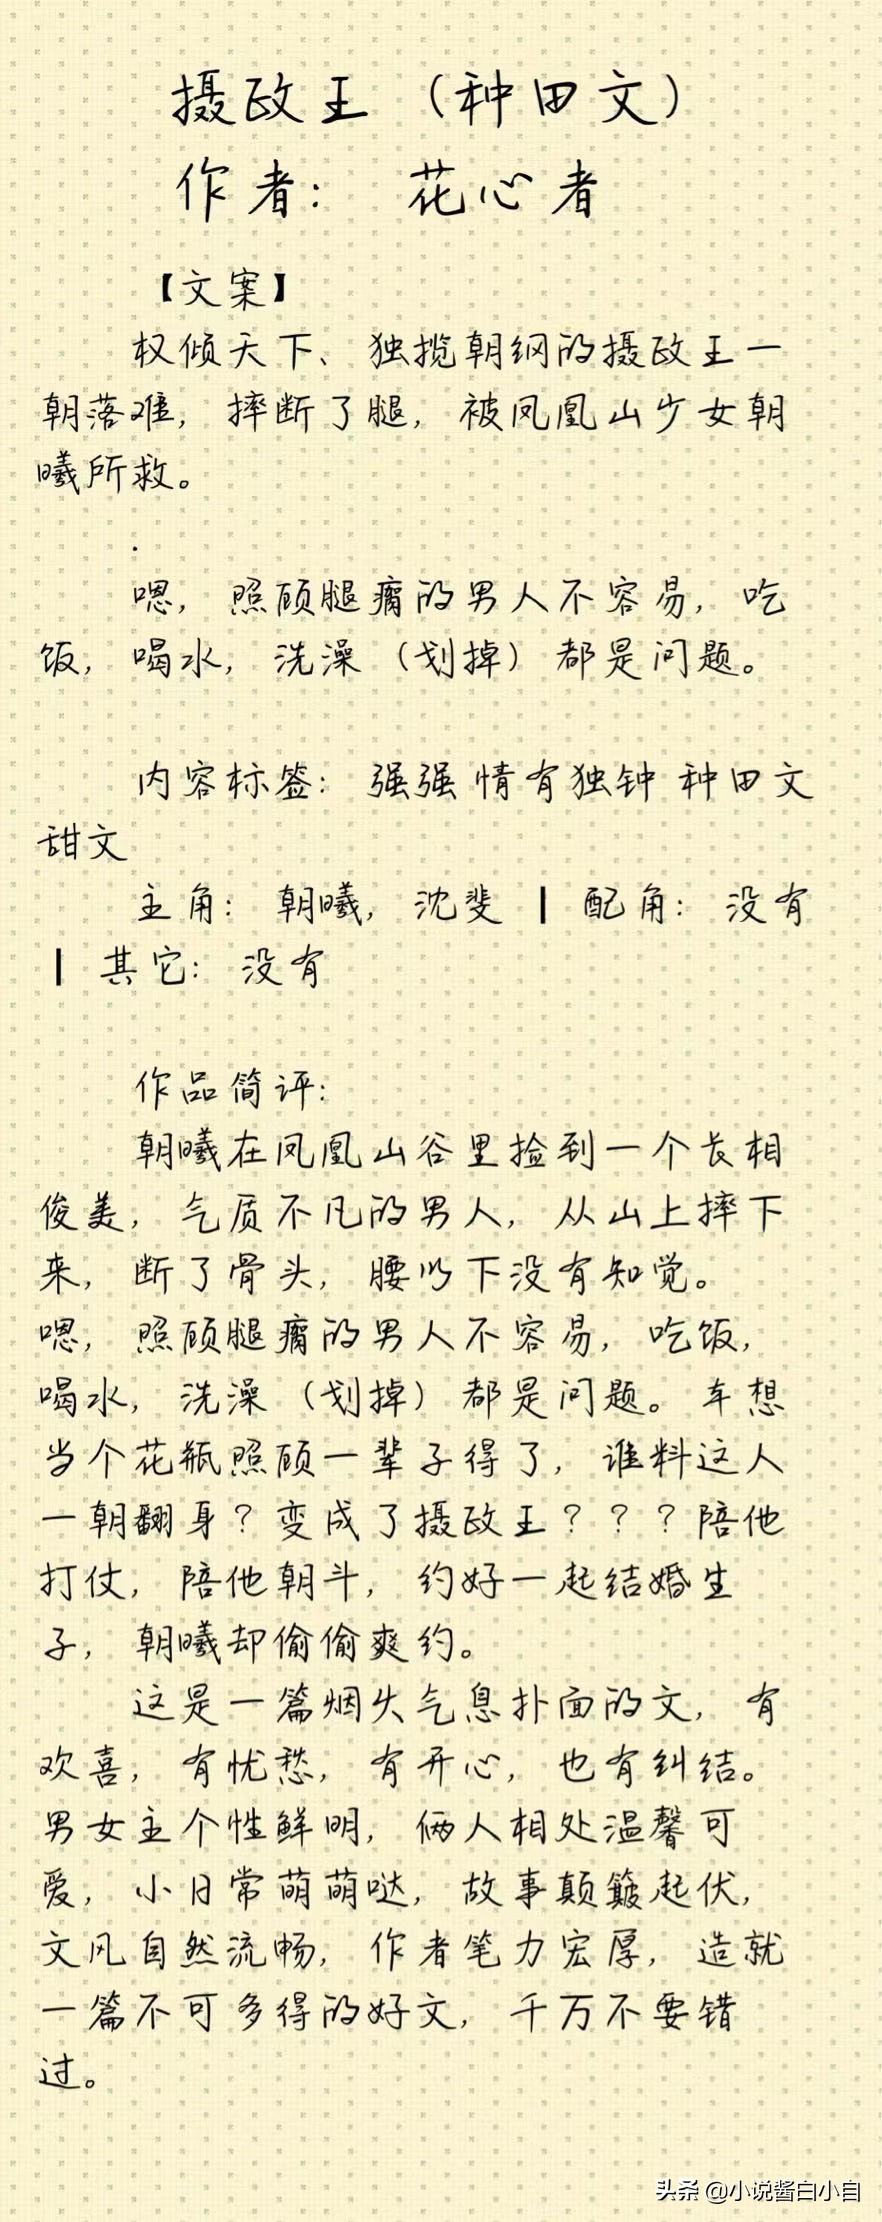 摄政王（种田文）
作者： 花心者
【文案】
权倾天下、独揽朝纲的摄政王一
朝落难，摔断了腿，被凤凰山少女朝
曦所救。
.
嗯，照顾腿瘸的男人不容易，吃
饭，喝水，洗澡（划掉）都是问题。
内容标签： 强强 情有独钟 种田文
甜文
主角： 朝曦，沈斐 ┃ 配角： 没有
┃ 其它： 没有
作品简评：
朝曦在凤凰山谷里捡到一个长相
俊美，气质不凡的男人，从山上摔下
来，断了骨头，腰以下没有知觉。
嗯，照顾腿瘸的男人不容易，吃饭，
喝水，洗澡（划掉）都是问题。本想
当个花瓶照顾一辈子得了，谁料这人
一朝翻身？变成了摄政王？？？陪他
打仗，陪他朝斗，约好一起结婚生
子，朝曦却偷偷爽约。
这是一篇烟火气息扑面的文，有
欢喜，有忧愁，有开心，也有纠结。
男女主个性鲜明，俩人相处温馨可
爱，小日常萌萌哒，故事颠簸起伏，
文风自然流畅，作者笔力宏厚，造就
一篇不可多得的好文，千万不要错
过。
头条 @小说酱白小白